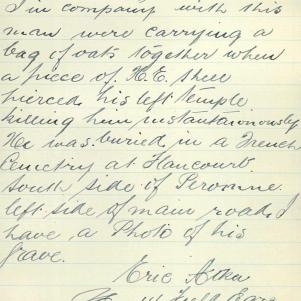 I in company with this
man were carrying a
bag of oats together when
a piece of H.E. shell
pierced his left temple
killing him instantainously
He was buried in a French
Cemetry at Hancourt
south side of Peronne
left side of main road. I
have a Photo of his
Grave.
Eric